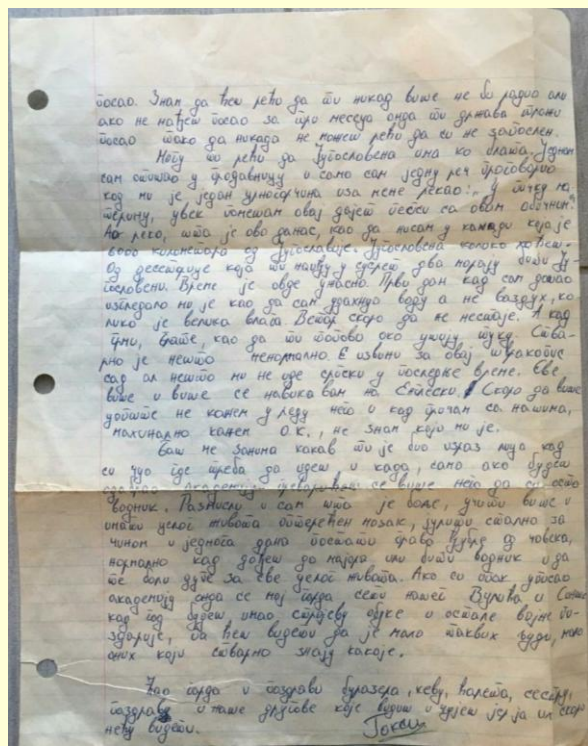 посао. Знам да ћеш рећи да ти никад више не би радио али
ако не нађеш посао за три месеца онда ти држава тражи
посао тако да никада не можеш рећи да си не запослен.
Могу ти рећи да Југословена има ко блата. Једном
сам отишао у продавницу и само сам једну реч проговорио
код ми је један црногорчина иза мене рекао: „У пичку ма-
терину, увек помешам овај дајет пепси са овим обичним"
Ао реко, шта је ово данас, као да нисам у канади која је
6000 километара од Југославије. Југословена колико хоћеш.
Од десеторице која ти наиђу у сусрет, два морају бити Ју
гословени. Време је овде ужасно. Први дан кад сам дошао
изгледало ми је као да сам удахнуо воду а не ваздух, ко
лико је велика влага. Ветар скоро да не постоје. А кад
грми, брате, као да ти топови око ушију туку. Ства-
рно је нешто ненормално. Е извини за овај рукопис
сад ал нешто ми не иде српски у последње време. Све
више и више се навикавам на Енглески. Скоро да више
уопште не кажем у реду него и кад причам са нашима,
машинално кажем О.К., не знам који ми је.
Баш ме занима какав ти је био израз лица кад
си чуо где треба да идеш и када, само ако будеш
академију се више него да си оста
водник. Размисли и сам шта је боље, учити више и
имати целог живота оптерећен мозак, јурити стално за
чином и једнога дана постати права од човека,
нормално кад дођеш до мајора или бити водник и да
те боли дупе за све целог живота. Ако си ипак уписао
академију онда се мој Ђорђа сети нашег Вујовића и
кад год будеш имао стројеву обуке и остале војне по-
здарије, па ћеш видети да је мало таквих људи, мало
оних који стварно знају како је.
Ћао Ђорђа и поздрави буразера, кеву, ћалета, сестру,
поздрави и наше другове које видиш и јер ја их скоро
нећу видети.